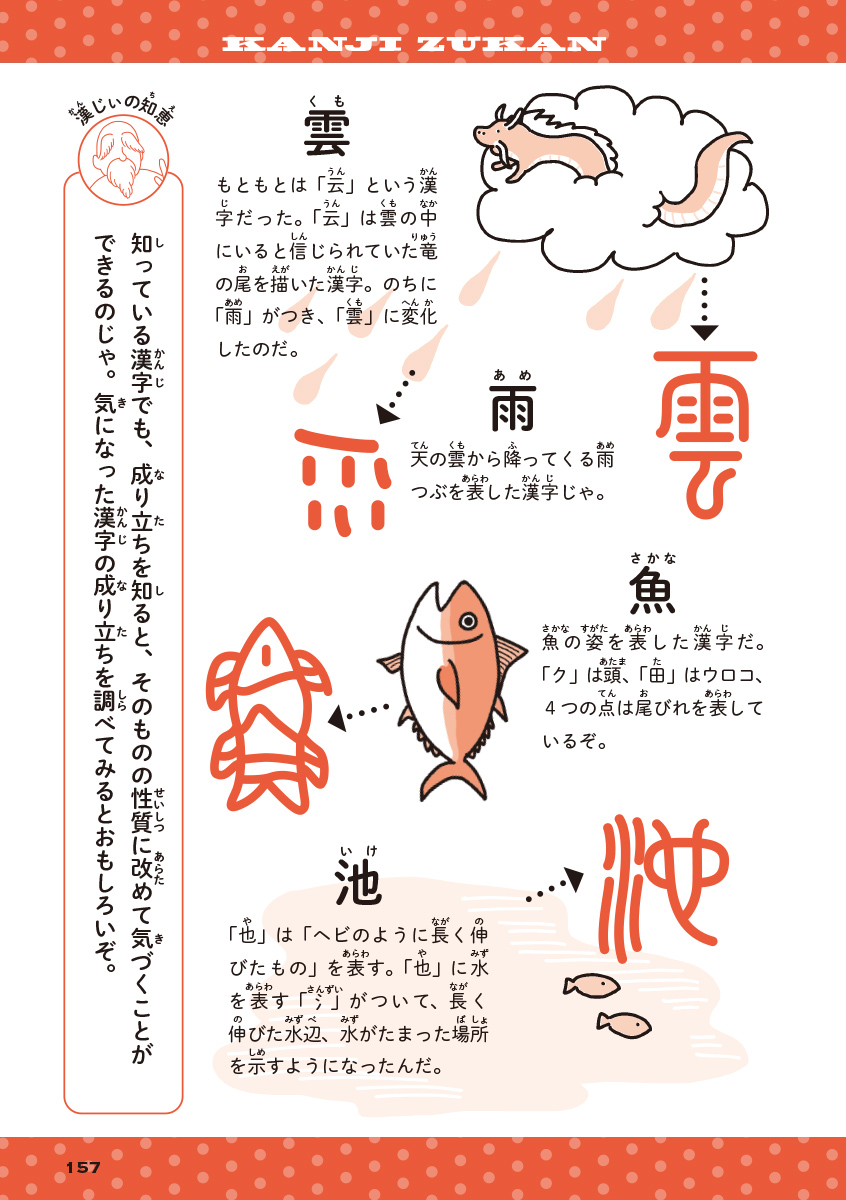 KANJI ZUKAN
雲
くも
もともとは「云」という漢
字だった。「云」は雲の中
にいると信じられていた竜
の尾を描いた漢字。のちに
「雨」がつき、「雲」に変化
したのだ。
雨
あめ
天の雲から降ってくる雨
つぶを表した漢字じゃ。
魚
さかな
魚の姿を表した漢字だ。
「ク」は頭、「田」はウロコ、
4つの点は尾びれを表して
いるぞ。
池
いけ
「也」は「ヘビのように長く伸
びたもの」を表す。「也」に水
を表す「氵」がついて、長く
伸びた水辺、水がたまった場所
を示すようになったんだ。
漢じぃの知恵
知っている漢字でも、成り立ちを知ると、そのものの性質に改めて気づくことが
できるのじゃ。気になった漢字の成り立ちを調べてみるとおもしろいぞ。
157